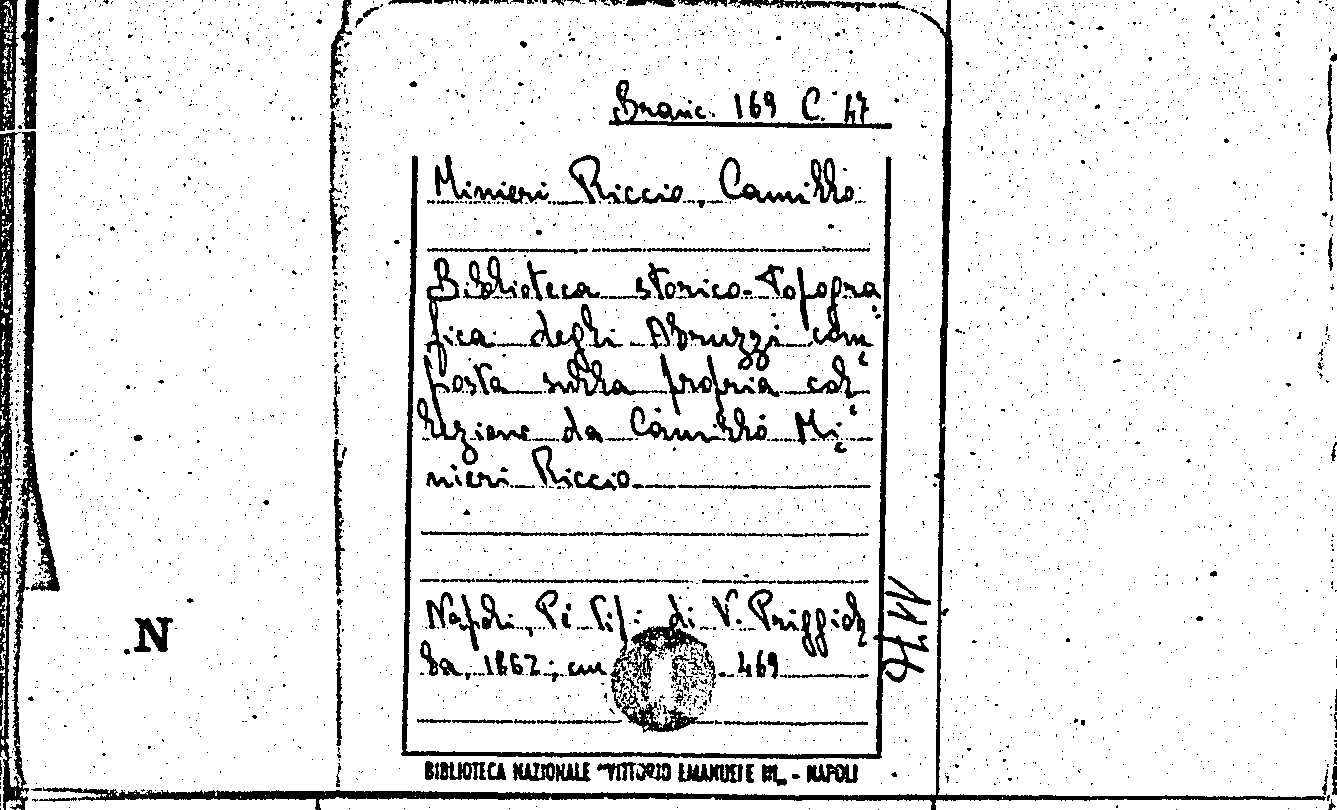 Branc. 169 C. 47
Minieri Riccio, Camillo
Biblioteca storico-topogra-
fica degli Abruzzi com-
posta sulla propria col-
lezione da Camillo Mi-
nieri Riccio
Napoli, Pe' Tip. di V. Priggiob-
ba, 1862; cm 469
1176
.N
BIBLIOTECA NAZIONALE "VITTORIO EMANUELE III„ - NAPOLI